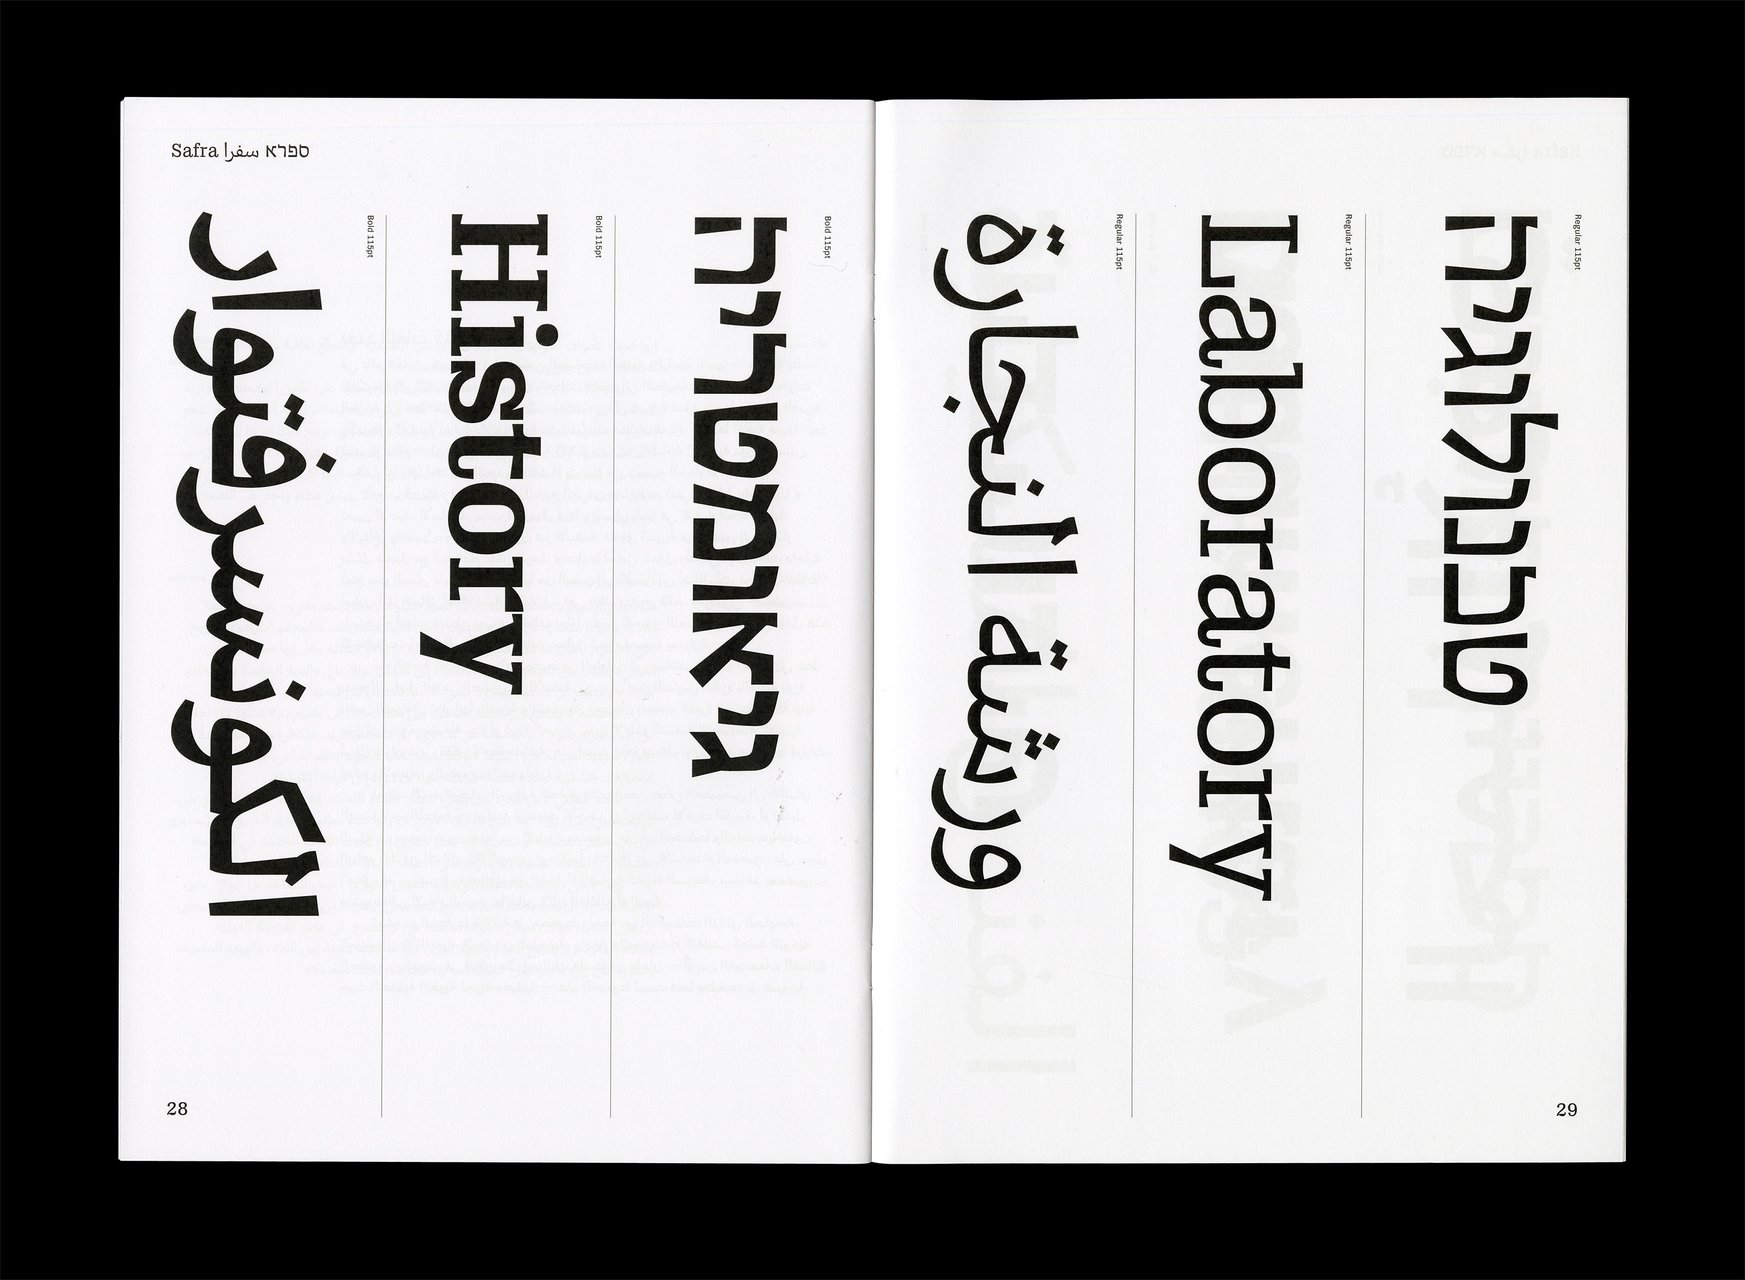 Safra سفرا ספרא
Bold 115pt
גיאומטריה
Bold 115pt
History
Bold 115pt
الكونسرفتوار
28
Regular 115pt
טכנולוגיה
Regular 115pt
Laboratory
Regular 115pt
ورشة النجارة
29